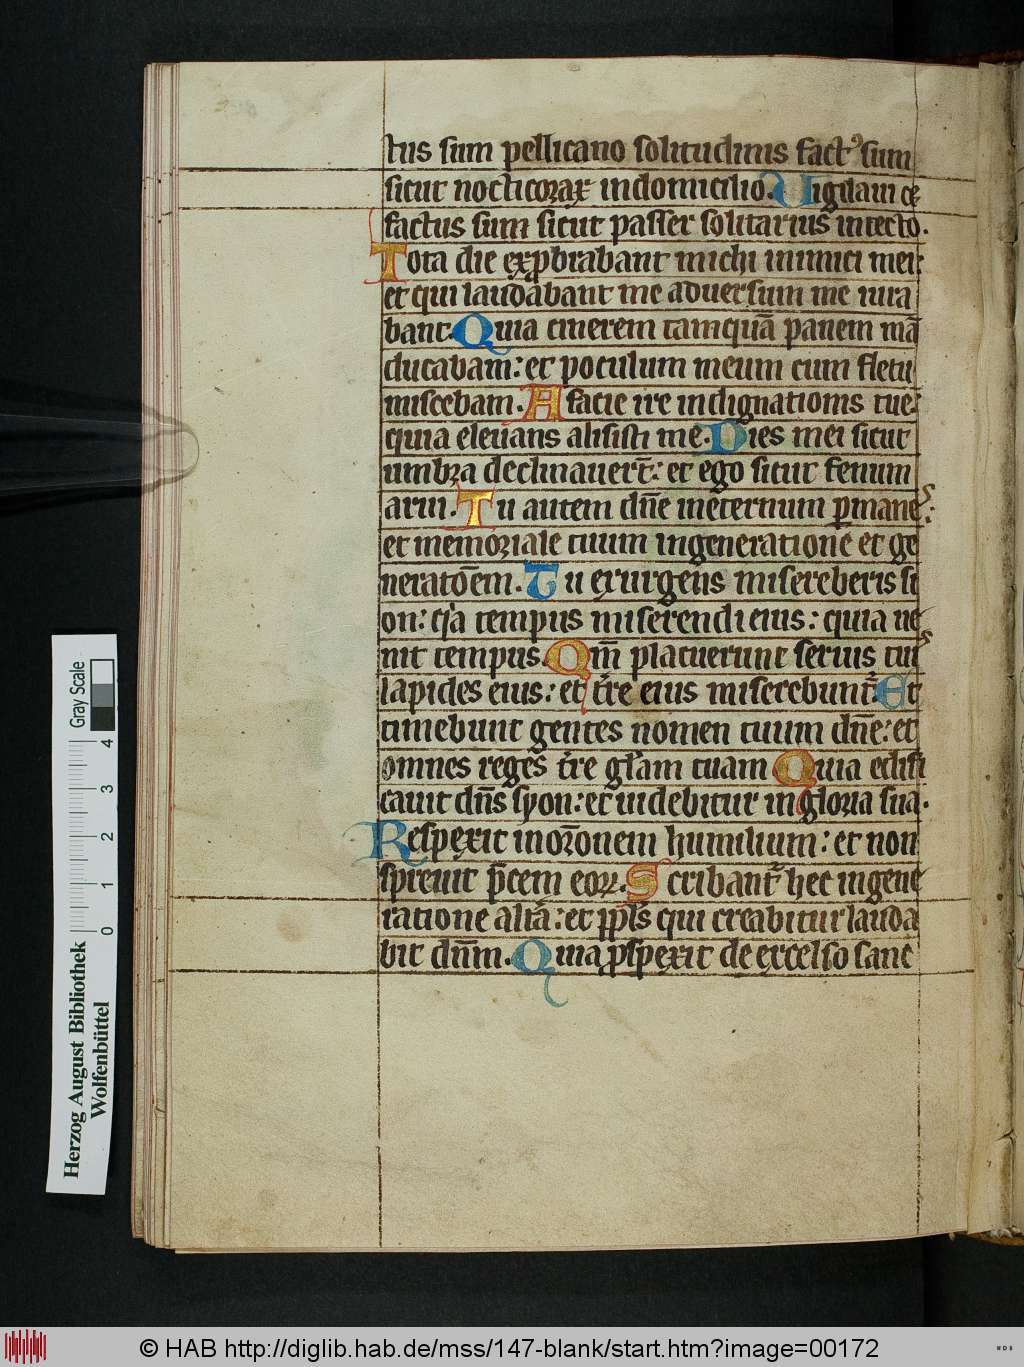 tus sum pellicano solitudinis factꝰ sum
sicut nocticorax in domicilio. Uigilaui et
factus sum sicut passer solitarius in tecto.
Tota die exprobrabant michi inimici mei:
et qui laudabant me aduersum me iura
bant. Quia cinerem tamquā panem mā
ducabam: et poculum meum cum fletu
miscebam. A facie ire indignationis tue:
quia eleuans alisisti me. Dies mei sicut
umbra declinauert̄: et ego sicut fenum
arui. Tu autem dn̄e in eternum ꝑmanes:
et memoriale tuum in generatione et ge
neratōem. Tu exurgens misereberis si
on: qia tempus miserendi eius: quia ue
nit tempus. Qm̄ placuerunt seruis tuis
lapides eius: et tr̄e eius miserebunt̄. Et
timebunt gentes nomen tuum dn̄e: et
omnes reges tr̄e glam tuam Quia edifi
cauit dn̄s syon: et uidebitur in gloria sua.
Respexit in orōnem humilium: et non
spreuit p̄cem eoꝝ. Scribant̄ hec in gene
ratione altā: et ppls qui creabitur lauda
bit dn̄m. Quia prospexit de excelso sanc
Gray Scale
0 1 2 3 4
Herzog August Bibliothek
Wolfenbüttel
© HAB http://diglib.hab.de/mss/147-blank/start.htm?image=00172